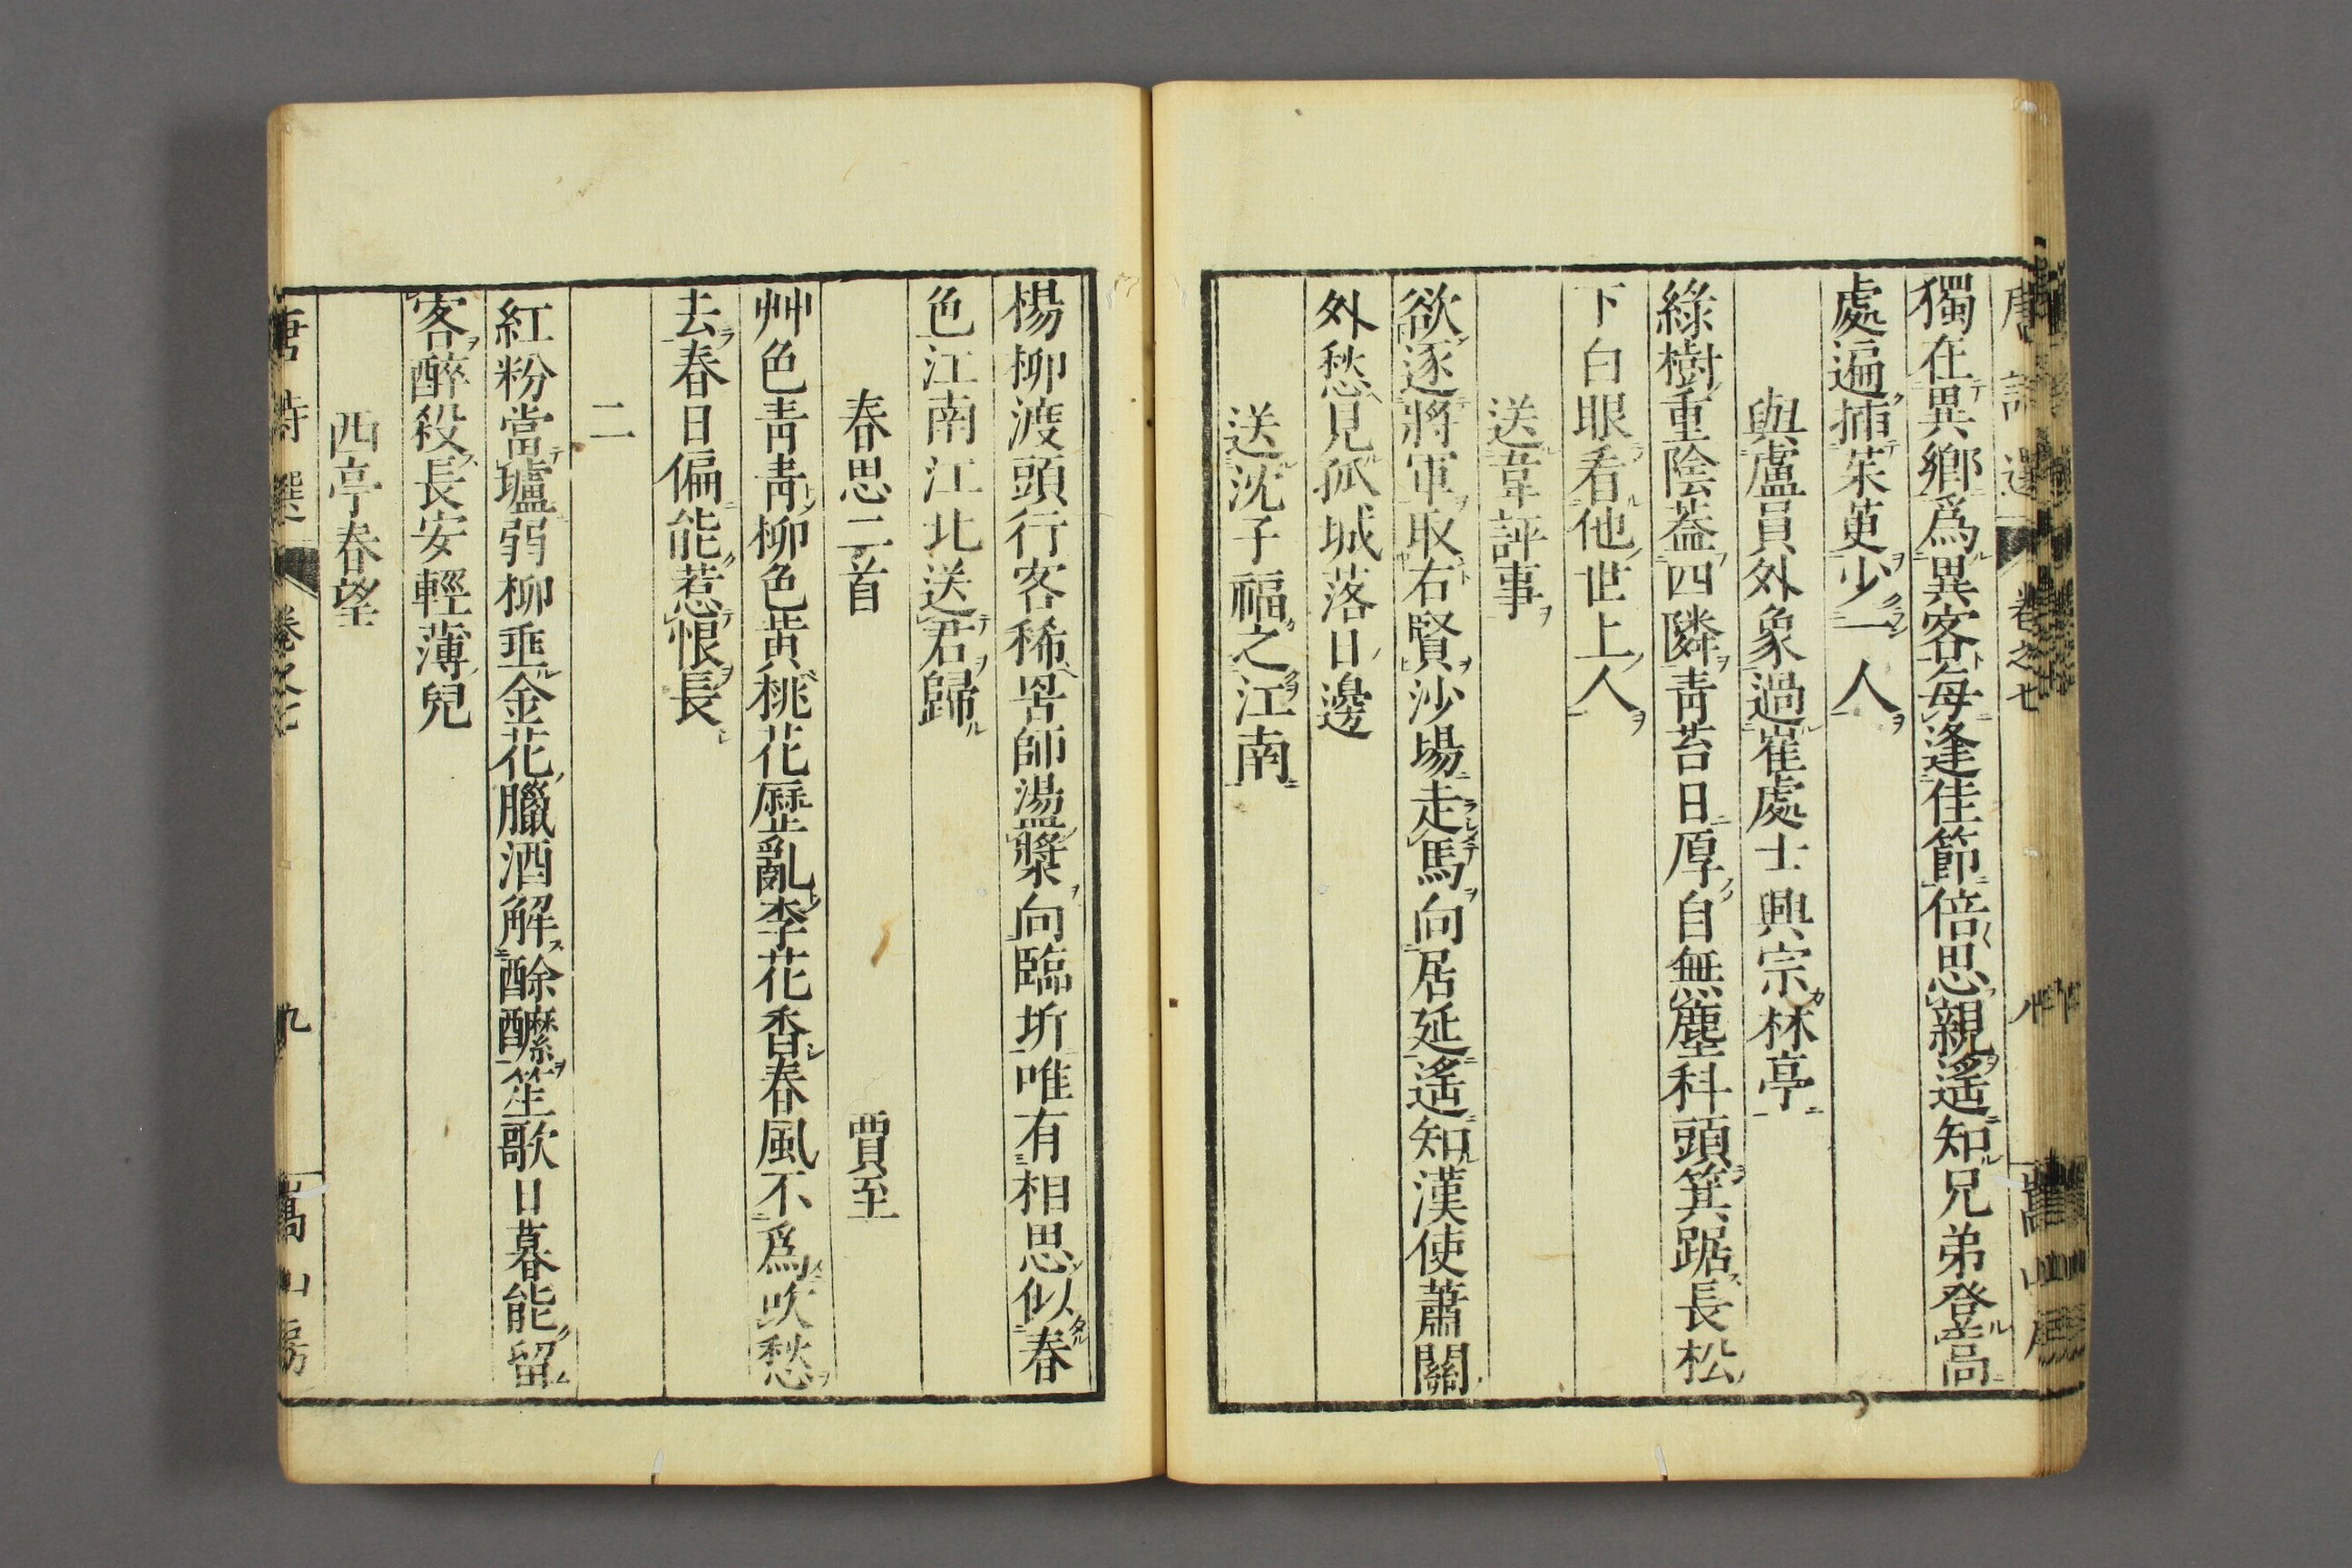 唐詩選 卷之七 八 嵩山房
獨在異鄉爲異客每逢佳節倍思親遙知兄弟登高
處遍插茱萸少一人
與盧員外象過崔處士興宗林亭
綠樹重陰蓋四隣青苔日厚自無塵科頭箕踞長松
下白眼看他世上人
送韋評事
欲逐將軍取右賢沙場走馬向居延遙知漢使蕭關
外愁見孤城落日邊
送沈子福之江南
楊柳渡頭行客稀罟師盪槳向臨圻唯有相思似春
色江南江北送君歸
春思二首 賈至
艸色青青柳色黃桃花歷亂李花香春風不爲吹愁
去春日偏能惹恨長
二
紅粉當壚弱柳垂金花臘酒解酴醾笙歌日暮能留
客醉殺長安輕薄兒
西亭春望
唐詩選 卷之七 九 嵩山房